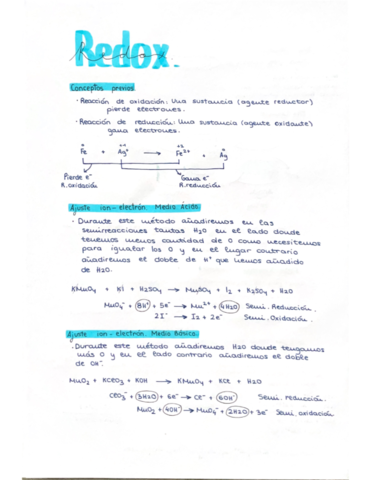 Redox.
Redox
Conceptos previos
· Reacción de oxidación: Una sustancia (agente reductor)
pierde electrones.
· Reacción de reducción: Una sustancia (agente oxidante)
gana electrones.
Fe + Ag⁺ → Fe²⁺ + Ag
Pierde e⁻ Gana e⁻
R.oxidación R.reducción
Ajuste ion-electrón. Medio Ácido
· Durante este método añadiremos en las
semirreacciones tantas H2O en el lado donde
tenemos menos cantidad de O como necesitemos
para igualar los O y en el lugar contrario
añadiremos el doble de H⁺ que hemos añadido
de H2O.
KMnO4 + KI + H2SO4 → MnSO4 + I2 + K2SO4 + H2O
MnO4⁻ + 8H⁺ + 5e⁻ → Mn²⁺ + 4H2O Semi. Reducción.
2I⁻ → I2 + 2e⁻ Semi. Oxidación.
Ajuste ion-electrón. Medio Básico.
· Durante este método añadiremos H2O donde tengamos
más O y en el lado contrario añadiremos el doble
de OH⁻.
MnO2 + KClO3 + KOH → KMnO4 + KCl + H2O
ClO3⁻ + 3H2O + 6e⁻ → Cl⁻ + 6OH⁻ Semi. reducción.
MnO2 + 4OH⁻ → MnO4⁻ + 2H2O + 3e⁻ Semi. oxidación